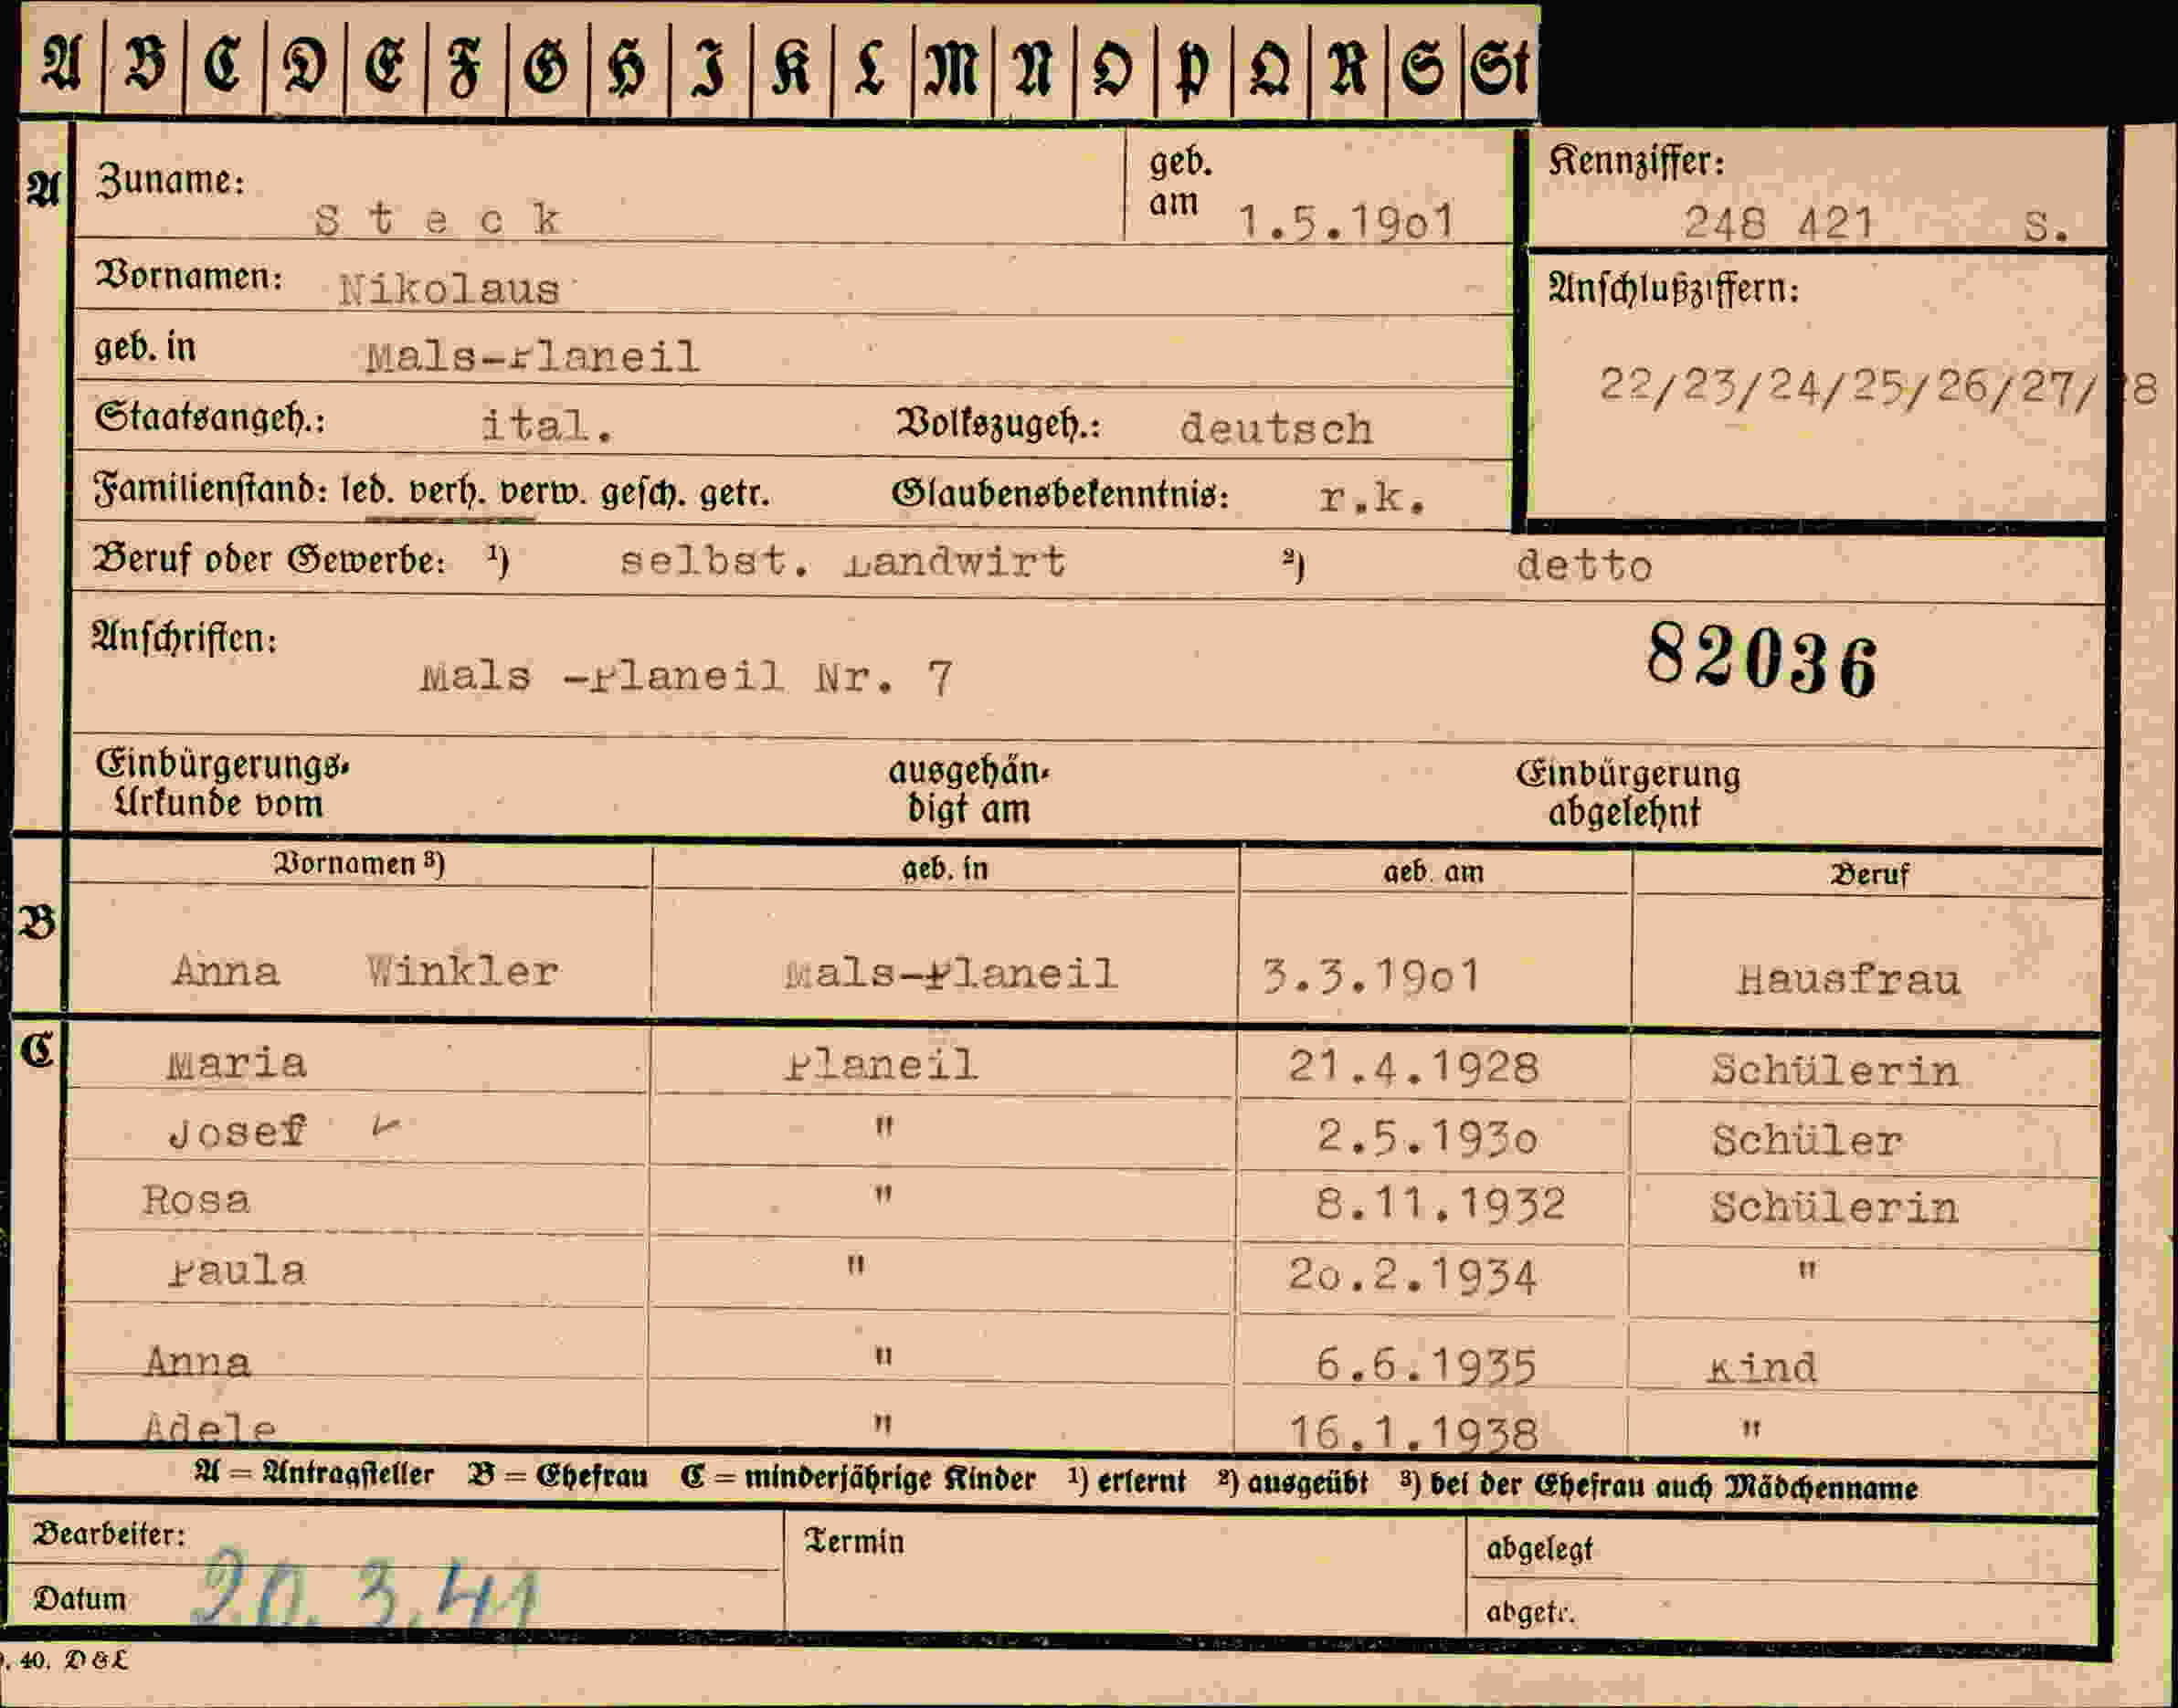 A B C D E F G H I K L M N O P Q R S St
A Zuname: Steck geb. am 1.5.19o1 Kennziffer: 248 421 S.
Vornamen: Nikolaus Anschlußziffern:
geb. in Mals-Planeil 22/23/24/25/26/27/28
Staatsangeh.: ital. Volkszugeh.: deutsch
Familienstand: led. verh. verw. gesch. getr. Glaubensbekenntnis: r.k.
Beruf oder Gewerbe: 1) selbst. Landwirt 2) detto
Anschriften: 82036
Mals -Planeil Nr. 7
Einbürgerungs- ausgehän- Einbürgerung
Urkunde vom digt am abgelehnt
Vornamen 3) geb. in geb. am Beruf
B
Anna Winkler Mals-Planeil 3.3.19o1 Hausfrau
C Maria Planeil 21.4.1928 Schülerin
Josef " 2.5.193o Schüler
Rosa " 8.11.1932 Schülerin
Paula " 2o.2.1934 "
Anna " 6.6.1935 Kind
Adele " 16.1.1938 "
A = Antragsteller B = Ehefrau C = minderjährige Kinder 1) erlernt 2) ausgeübt 3) bei der Ehefrau auch Mädchenname
Bearbeiter: Termin abgelegt
Datum 20.3.41 abgetr.
. 40. D & L